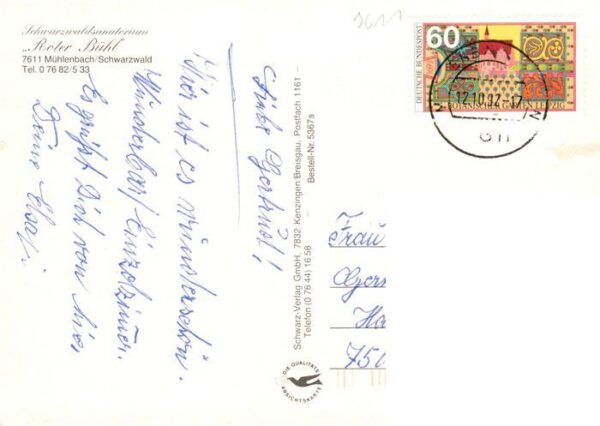 Schwarzwaldsanatorium
„Roter Bühl"
7611 Mühlenbach/Schwarzwald
Tel. 0 76 82/5 33
Liebe Gertrud!
Hier ist es wunderschön.
Wunderbar/Einzelzimmer.
Es grüßt Dich von hier,
Deine Elsa
Schwarz-Verlag GmbH, 7832 Kenzingen/Breisgau, Postfach 1161 -
Telefon (0 76 44) 16 58
Bestell-Nr. 5367s
DIE QUALITÄTS
ANSICHTSKARTE
3611
60
DEUTSCHE BUNDESPOST
12.10.92-17
Frau
Ger
Ha
750